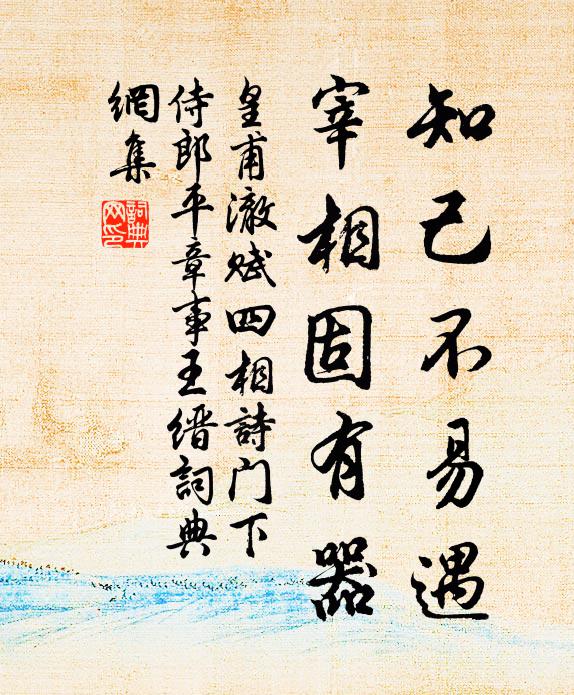 知己不易遇
宰相固有器
皇甫澈赋四相詩门下
侍郎平章事王缙詞典
網集
詞典
网印